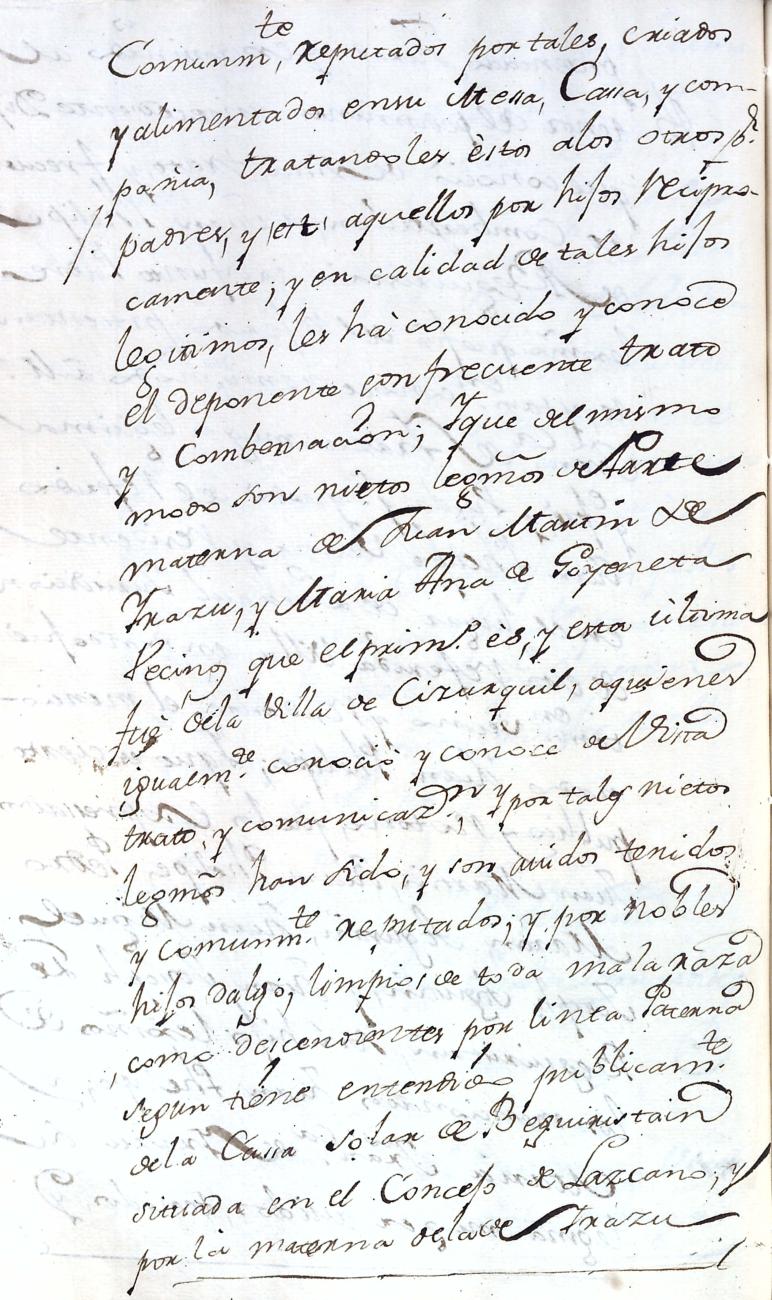 Comunmte, reputados por tales, criados
y alimentados en su Messa, Cassa, y com-
pañia, tratandoles èstos alos otros pr.
padres, y aquellos por hijos recipro-
camente; y en calidad de tales hijos
legitimos, les hà conocido y conoce
el deponente con frecuente trato
y Combersacion; Yque del mismo
modo son nietos legmos de Parte
materna de Juan Martin de
Yrazu, y Maria Ana de Goyeneta
Vecinos que el primo. ès, y esta ùltima
fuè dela Villa de Cizurquil, aquienes
igualmte. conociò y conoce de Vista
trato, y comunicazn, y por tales nietos
legmos han sido, y son auidos tenidos
y comunmte. reputados; y por nobles
hijos dalgo, limpios de toda mala raza
como descendientes por linea Paterna
segun tiene entendido publicamte.
dela Cassa solar de Beguiristain
situada en el Concejo de Lazcano, y
por la materna dela de Yrazu